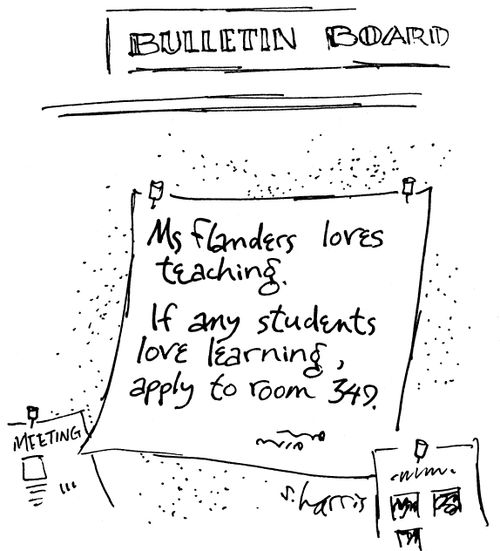 BULLETIN BOARD
Ms Flanders loves
teaching.
If any students
love learning,
apply to room 349.
MEETING
s. harris